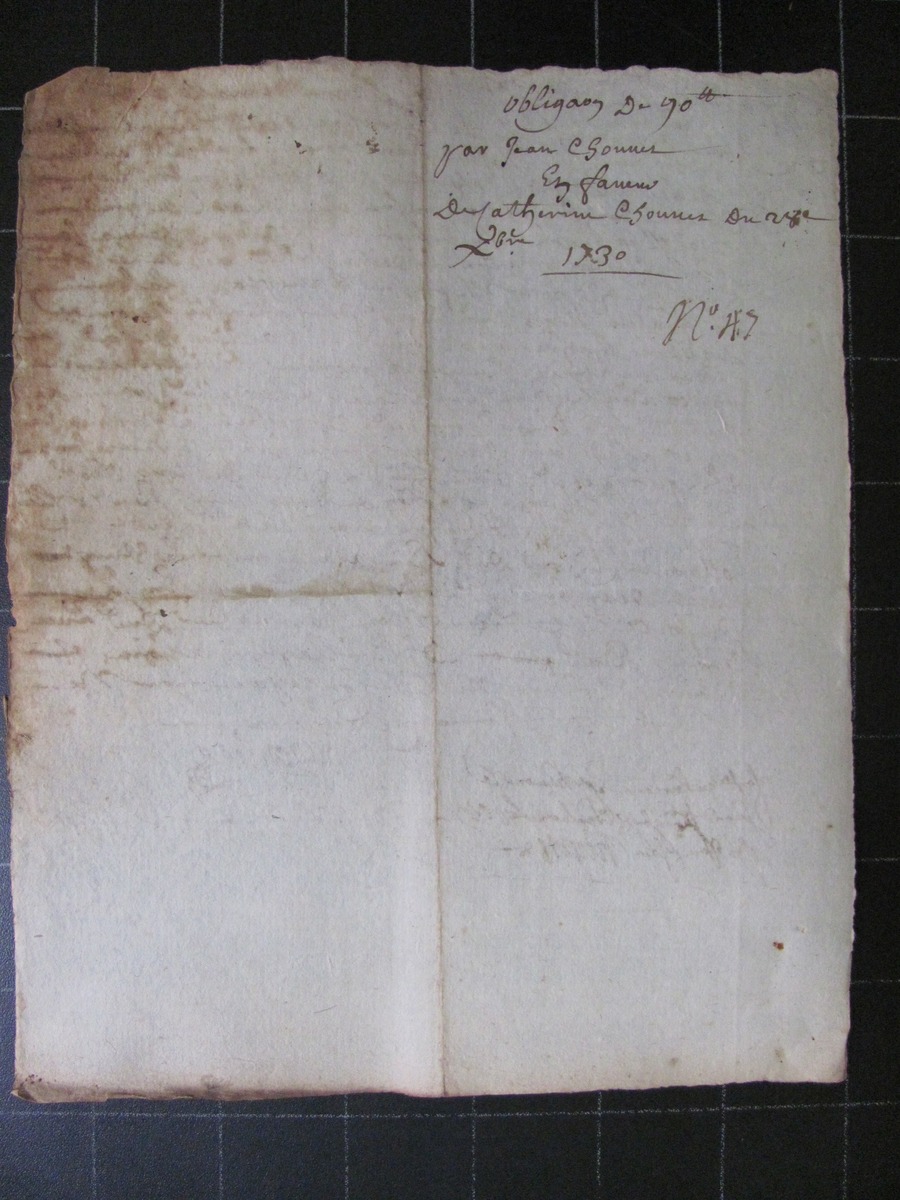 obligaōn De 90ᵗᵗ
par Jean Chouvet
En faveur
De Catherine Chouvet Du
Xbre
1730
N° 47